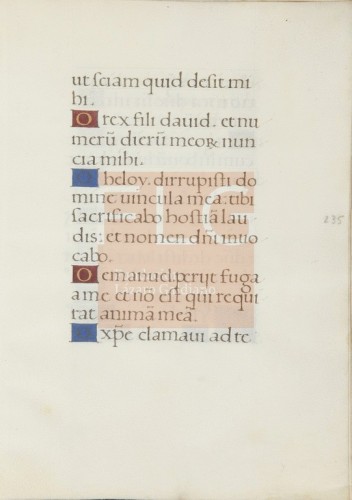 ut sciam quid desit mi
bi.
O rex fili david. et nu
merū dierū meoꝝ nun
cia mibi.
heloy. dirrupisti do
mine vincula mea: tibi
sacrificabo hostiā lau
dis: et nomen dn̄i invo
cabo.
O emanuel periit fuga
a me et nō est qui requi
rat animā meā.
xp̄e clamavi ad te
235